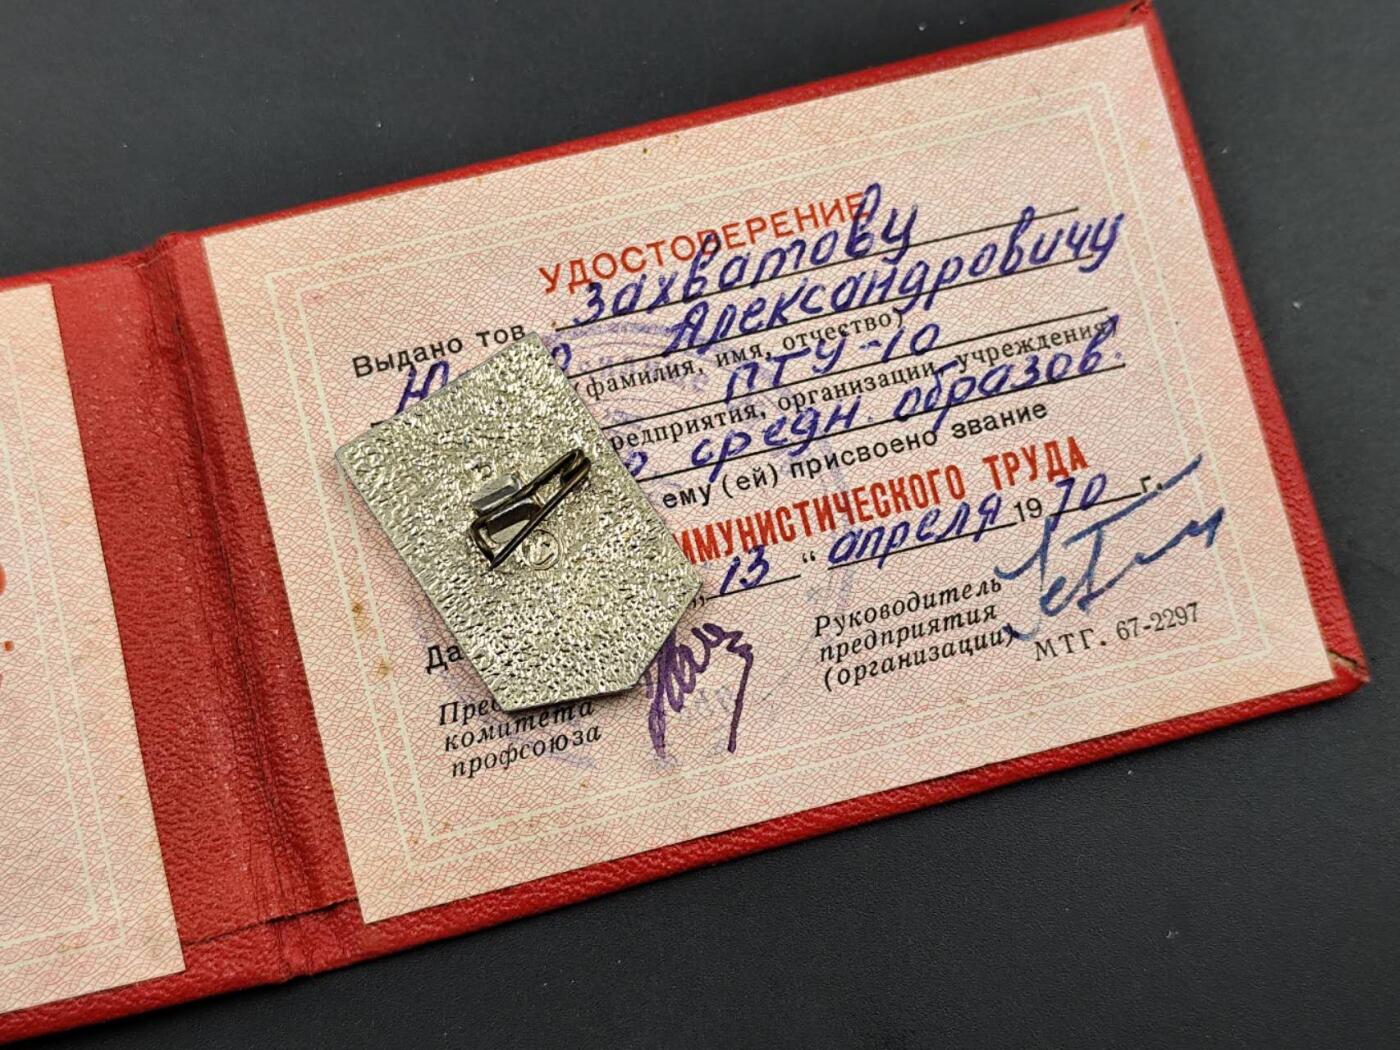 УДОСТОВЕРЕНИЕ
Выдано тов. Захватову
Александровичу
(фамилия, имя, отчество)
ПТУ-10
редприятия, организации, учреждения)
средн. образов.
ему (ей) присвоено звание
ММУНИСТИЧЕСКОГО ТРУДА
„13“ апреля 1970 г.
Да
Пред
комитета
профсоюза
Руководитель
предприятия
(организации)
МТГ. 67-2297